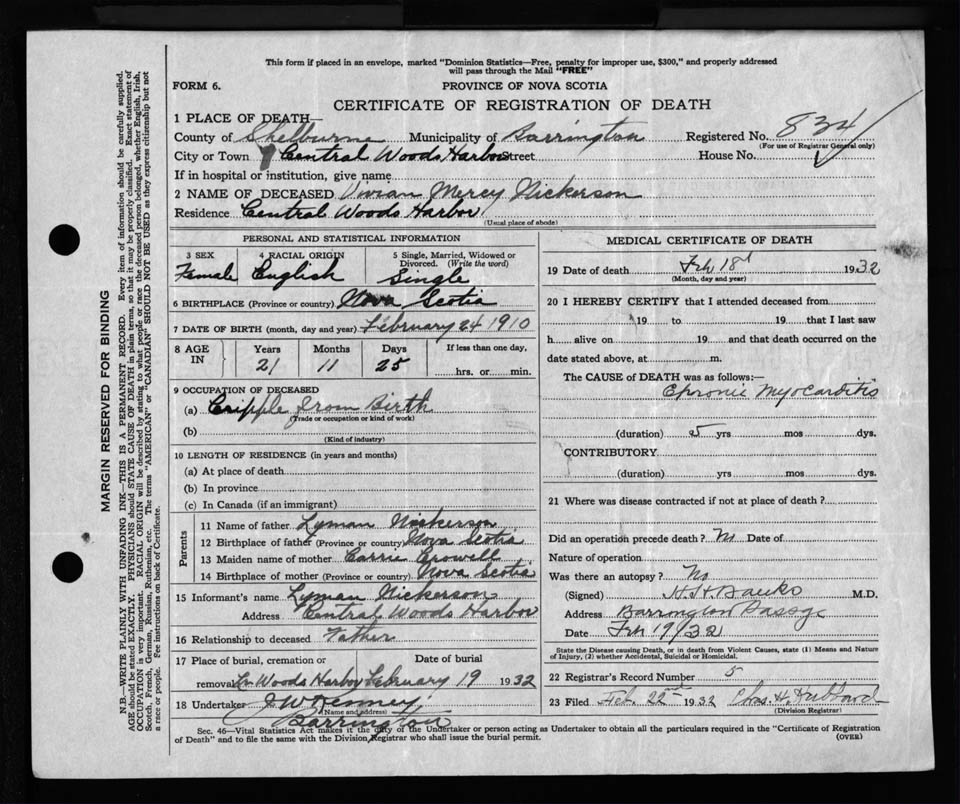 This form if placed in an envelope, marked "Dominion Statistics—Free, penalty for improper use, $300," and properly addressed
will pass through the Mail "FREE"
FORM 6.
PROVINCE OF NOVA SCOTIA
CERTIFICATE OF REGISTRATION OF DEATH
1 PLACE OF DEATH—
County of Shelburne Municipality of Barrington Registered No. 834
(For use of Registrar General only)
City or Town Central Woods Harbor Street House No.
If in hospital or institution, give name
2 NAME OF DECEASED Vivian Mercy Nickerson
Residence Central Woods Harbor
(Usual place of abode)
PERSONAL AND STATISTICAL INFORMATION
3 SEX 4 RACIAL ORIGIN 5 Single, Married, Widowed or
Divorced. (Write the word)
Female English Single
6 BIRTHPLACE (Province or country) Nova Scotia
7 DATE OF BIRTH (month, day and year) February 24 1910
8 AGE IN Years Months Days If less than one day,
21 11 25 hrs. or min.
9 OCCUPATION OF DECEASED
(a) Cripple from Birth
(Trade or occupation or kind of work)
(b)
(Kind of industry)
10 LENGTH OF RESIDENCE (in years and months)
(a) At place of death
(b) In province
(c) In Canada (if an immigrant)
Parents
11 Name of father Lyman Nickerson
12 Birthplace of father (Province or country) Nova Scotia
13 Maiden name of mother Carrie Crowell
14 Birthplace of mother (Province or country) Nova Scotia
15 Informant's name Lyman Nickerson
Address Central Woods Harbor
16 Relationship to deceased Father
17 Place of burial, cremation or Date of burial
removal Woods Harbor February 19 1932
18 Undertaker J W Kenney
(Name and address)
Barrington
MEDICAL CERTIFICATE OF DEATH
19 Date of death Feb 18 1932
(Month, day and year)
20 I HEREBY CERTIFY that I attended deceased from
19 to 19 that I last saw
h alive on 19 and that death occurred on the
date stated above, at m.
The CAUSE of DEATH was as follows:—
Chronic Myocarditis
(duration) 5 yrs mos dys.
CONTRIBUTORY
(duration) yrs mos dys.
21 Where was disease contracted if not at place of death?
Did an operation precede death? No Date of
Nature of operation
Was there an autopsy? No
(Signed) H H Banks M.D.
Address Barrington Passge
Date Feb 19/32
State the Disease causing Death, or in death from Violent Causes, state (1) Means and Nature
of Injury, (2) whether Accidental, Suicidal or Homicidal.
22 Registrar's Record Number 5
23 Filed Feb. 22 1932 Chas. H. Hubbard
(Division Registrar)
Sec. 46—Vital Statistics Act makes it the duty of the Undertaker or person acting as Undertaker to obtain all the particulars required in the "Certificate of Registration
of Death" and to file the same with the Division Registrar who shall issue the burial permit.
(OVER)
MARGIN RESERVED FOR BINDING
N.B.—WRITE PLAINLY WITH UNFADING INK—THIS IS A PERMANENT RECORD. Every item of information should be carefully supplied.
AGE should be stated EXACTLY. PHYSICIANS should STATE CAUSE OF DEATH in plain terms, so that it may be properly classified. Exact statement of
OCCUPATION is very important. RACIAL ORIGIN will be described by stating to what people or race the deceased person belonged, whether English, Irish,
Scotch, French, German, Russian, Ruthenian, etc. The terms "AMERICAN" or "CANADIAN" SHOULD NOT BE USED as they express citizenship but not
a race or people. Fee instructions on back of Certificate.